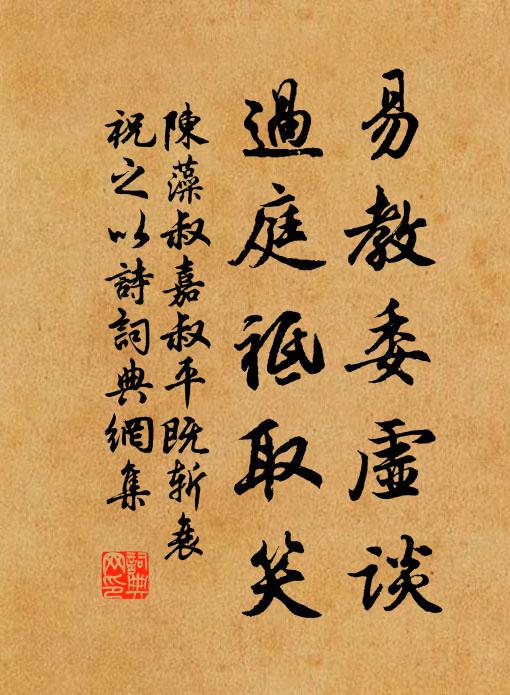 易教委虛談
過庭祗取笑
陳藻叔嘉叔平既斬衰
祝之以詩詞典網集
詞典網印